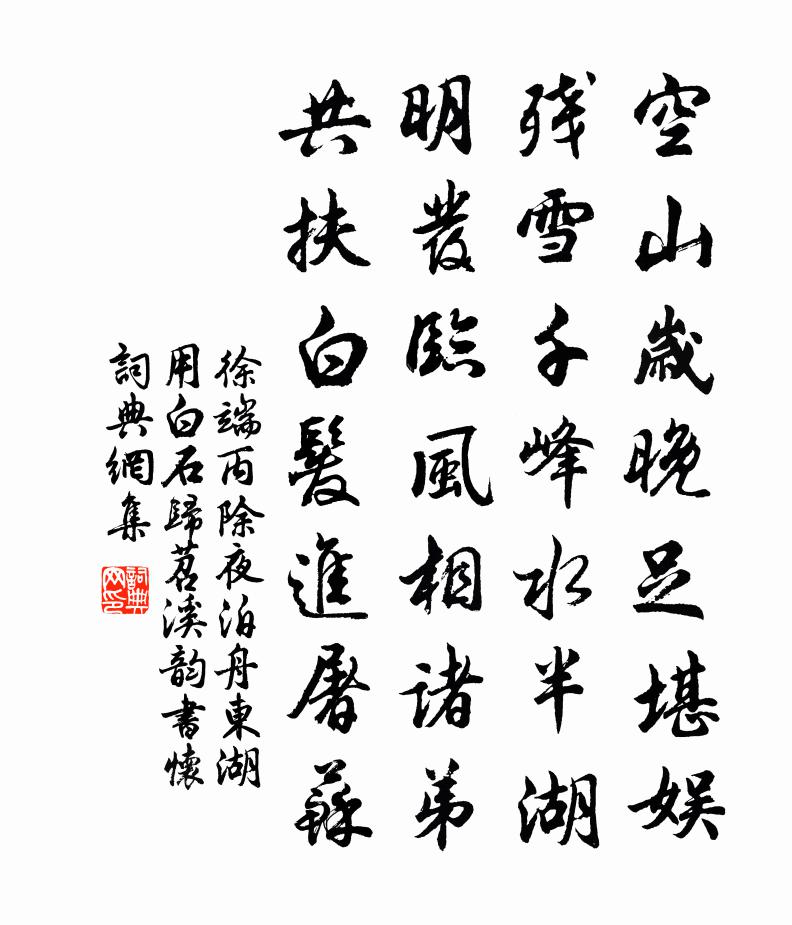 空山歲晚足堪娛
殘雪千峰水半湖
明發臨風相諸弟
共扶白髮進屠蘇
徐端丙除夜泊舟東湖
用白石歸苕溪韵書懷
詞典網集
詞典網印